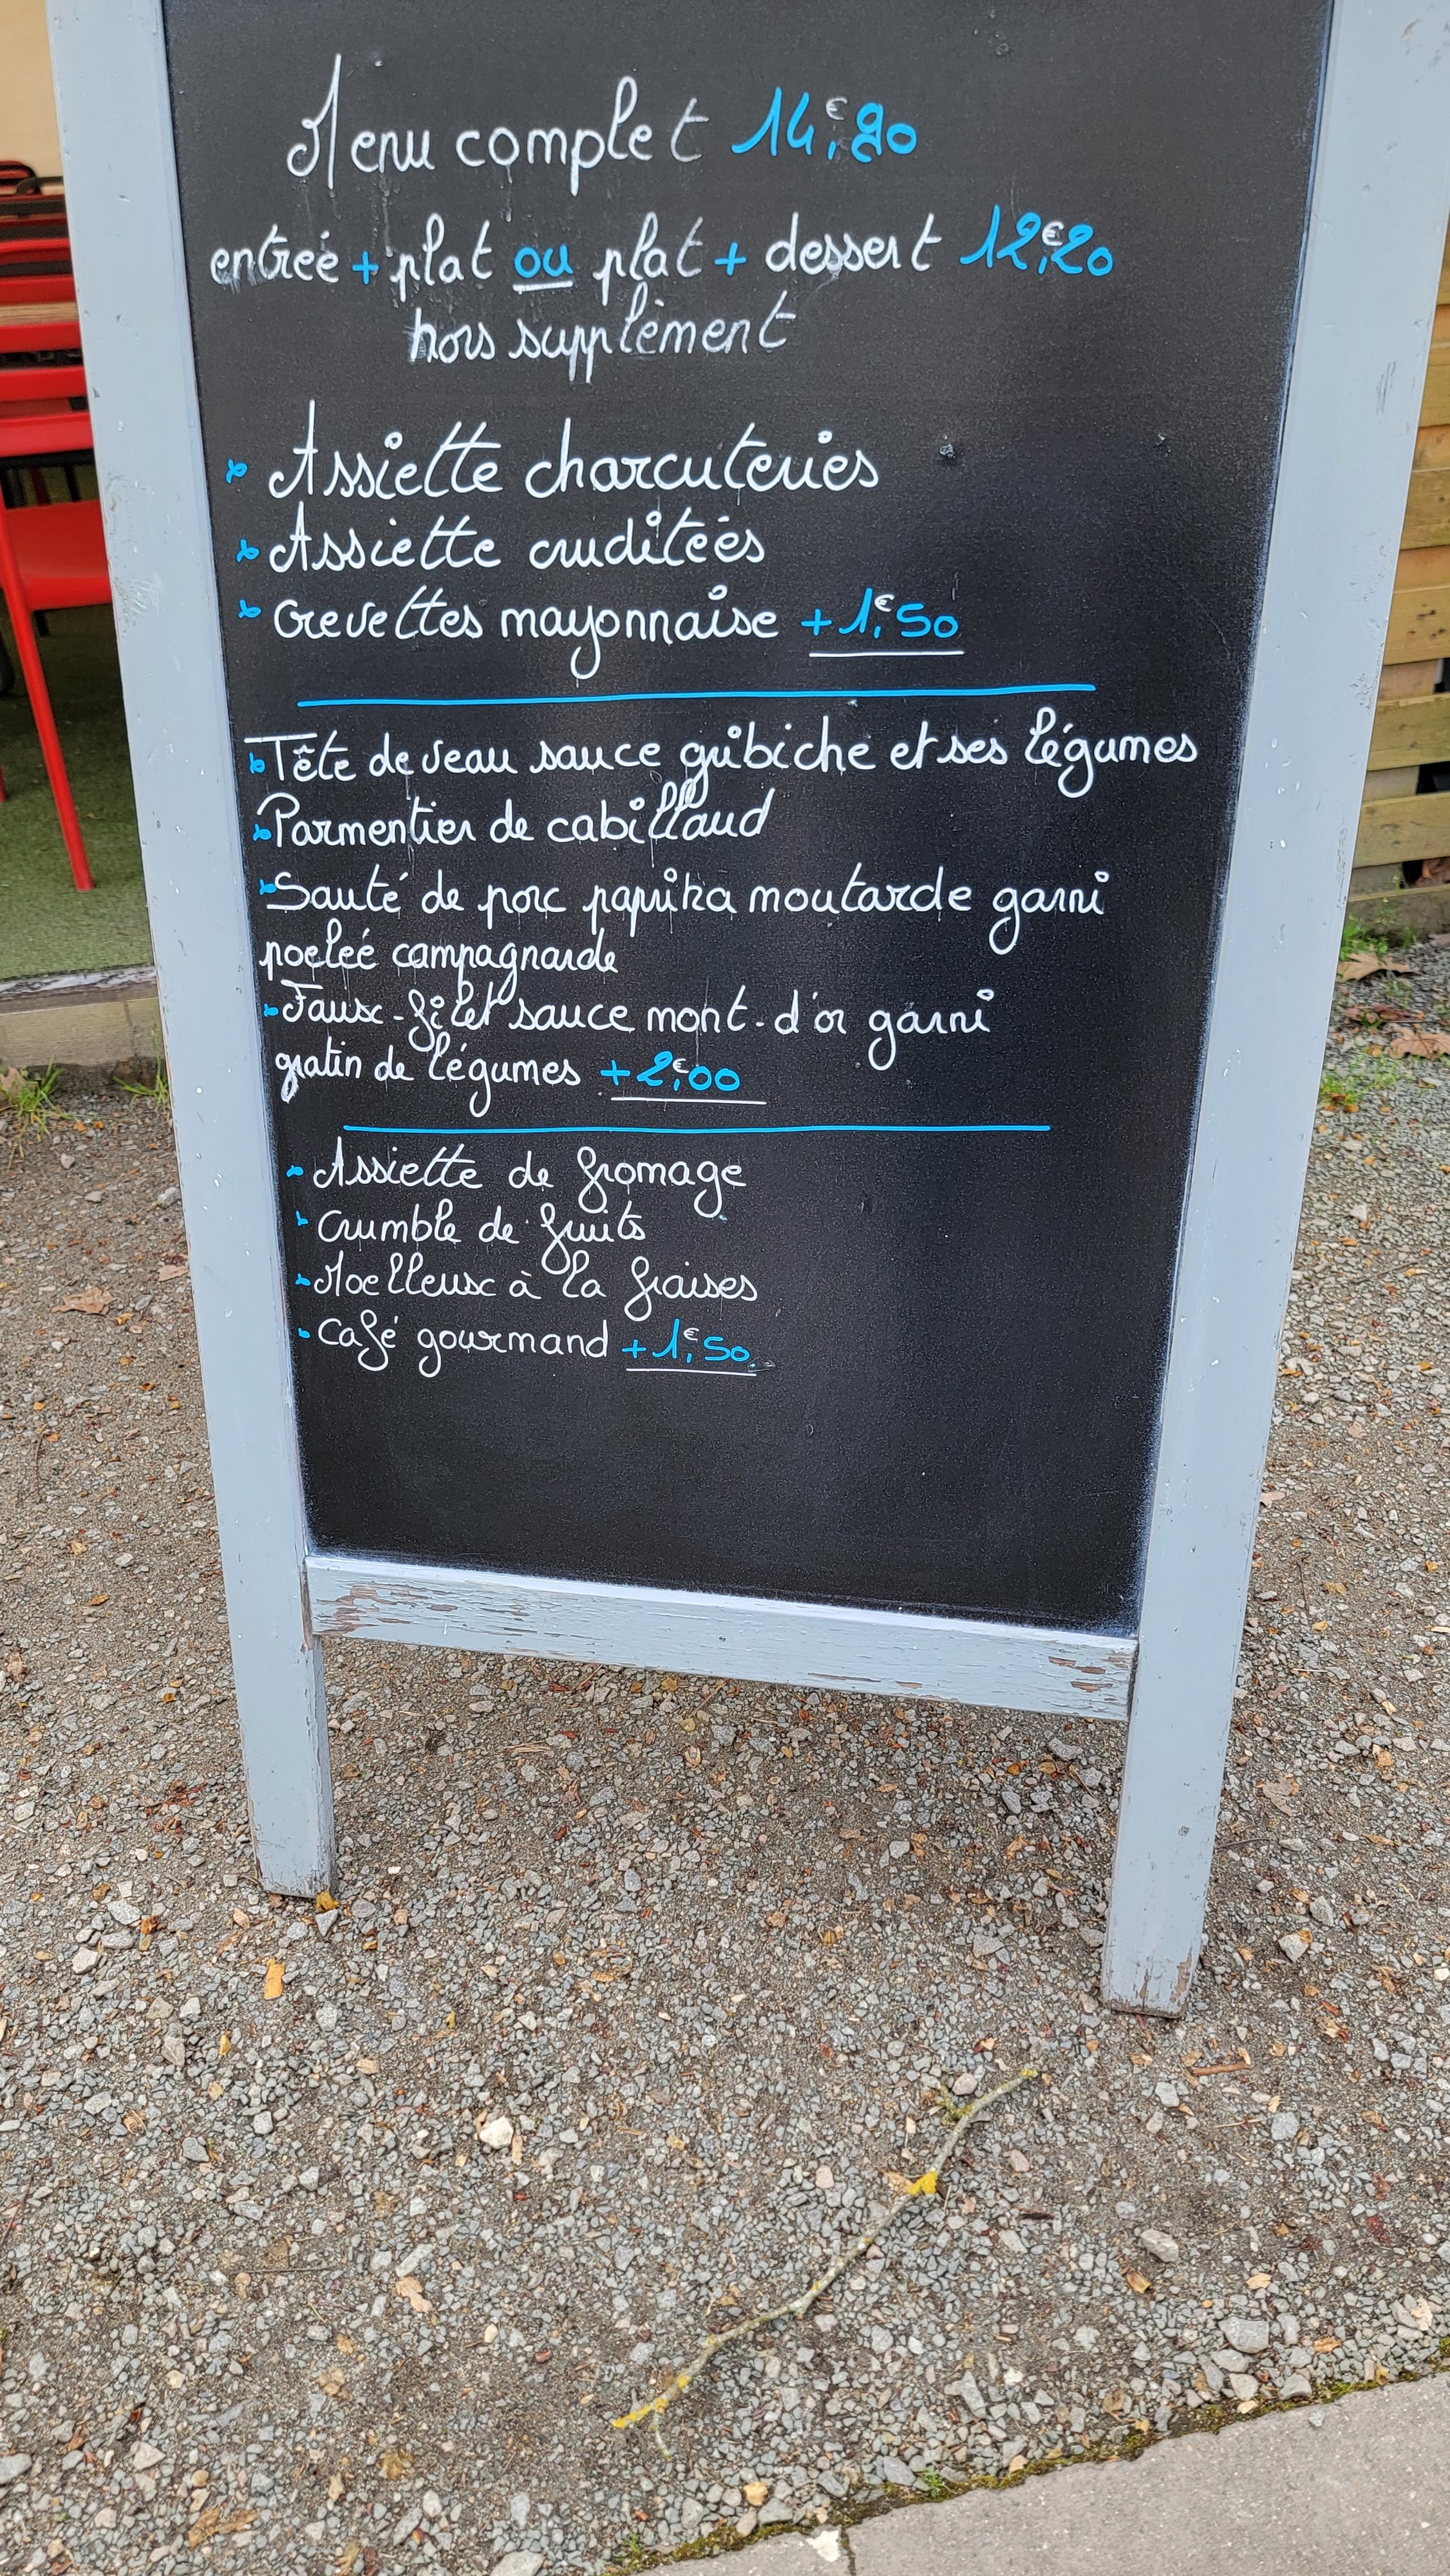 Menu complet 14,€90
entreé + plat ou plat + dessert 12,€20
hors supplèment
Assiette charcuteries
Assiette cruditeés
Crevettes mayonnaise +1,€50
Tête de veau sauce gribiche et ses légumes
Parmentier de cabillaud
Sauté de porc paprika moutarde garni
poeleé campagnarde
Faux-filet sauce mont-d'or garni
gratin de légumes +2,€00
Assiette de fromage
Crumble de fruits
Moelleux à la fraises
Café gourmand +1,€50